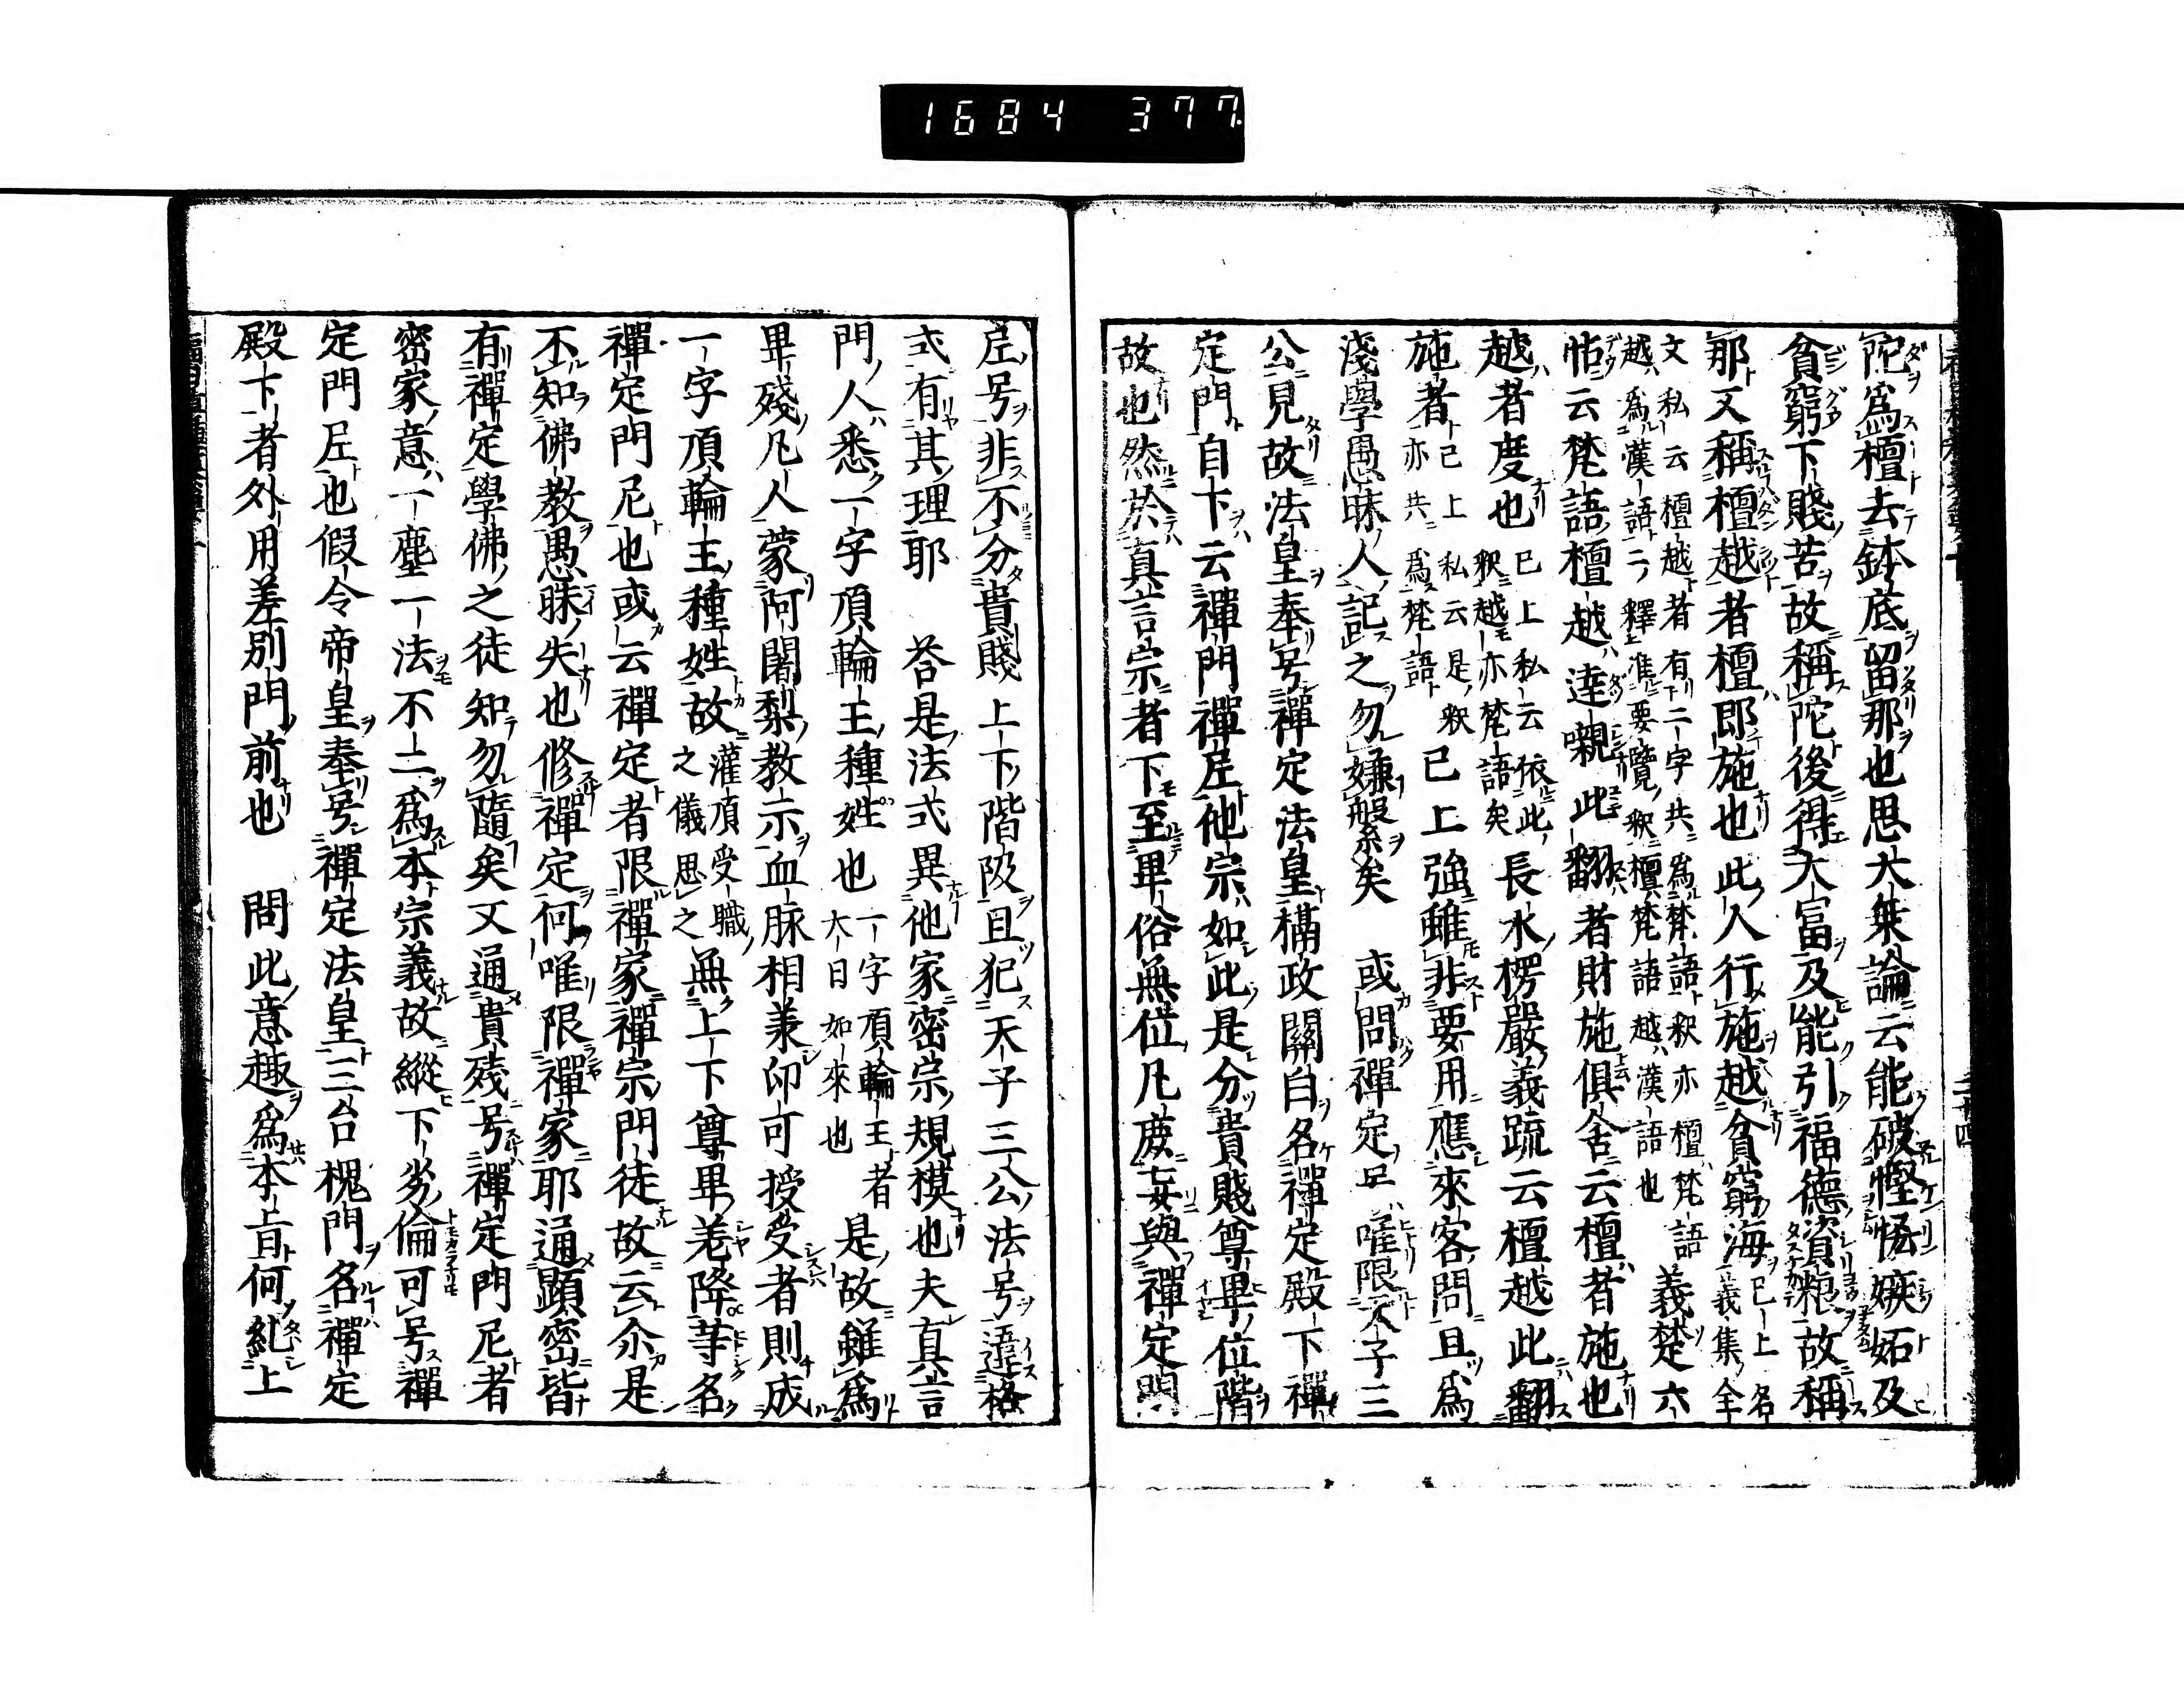 1684 377
陀爲檀去鉢底留那也思大乗論云能破慳悋嫉妬及
貧窮下賤苦故稱陀後得大富及能引福德資粮故稱
那又稱檀越者檀即施也此人行施越貧窮海已上名義集全
文私云檀越者有二字共爲梵語釈亦檀梵語
越爲漢語二釋准要覽釈檀梵語越漢語也義楚六
帖云梵語檀越達嚫此翻者財施俱舍云檀者施也
越者度也已上私云依此釈越亦梵語矣長水楞嚴義疏云檀越此翻
施者已上私云是釈亦共爲梵語已上強雖非要用應來客問且爲
淺學愚昧人記之勿嫌繁矣 或問禪定尼唯限天子三
公見故法皇奉号禪定法皇攝政關白名禪定殿下禪
定門自下云禪門禪尼他宗如此是分貴賤尊卑位階
故也然於真言宗者下至卑俗無位凡庶妄與禪定門
尼号非不分貴賤上下階級且犯天子三公法号違格
式有其理耶 答是法式異他家密宗規模也夫真言
門人悉一字頂輪王種姓也一字頂輪王者大日如來也是故雖爲
卑殘凡人蒙阿闍梨教示血脉相兼印可授受者則成
一字頂輪王種姓故灌頂受職之儀思之無上下尊卑差降等名
禪定門尼也或云禪定者限禪家禪宗門徒故云尒是
不知佛教愚昧失也修禪定何唯限禪家耶通顯密皆
有禪定學佛之徒知勿隨矣又通貴残号禪定門尼者
密家意一塵一法不二爲本宗義故縱下劣倫可号禪
定門尼也假令帝皇奉号禪定法皇三台槐門名禪定
殿下者外用差別門前也 問此意趣爲本旨何糺上